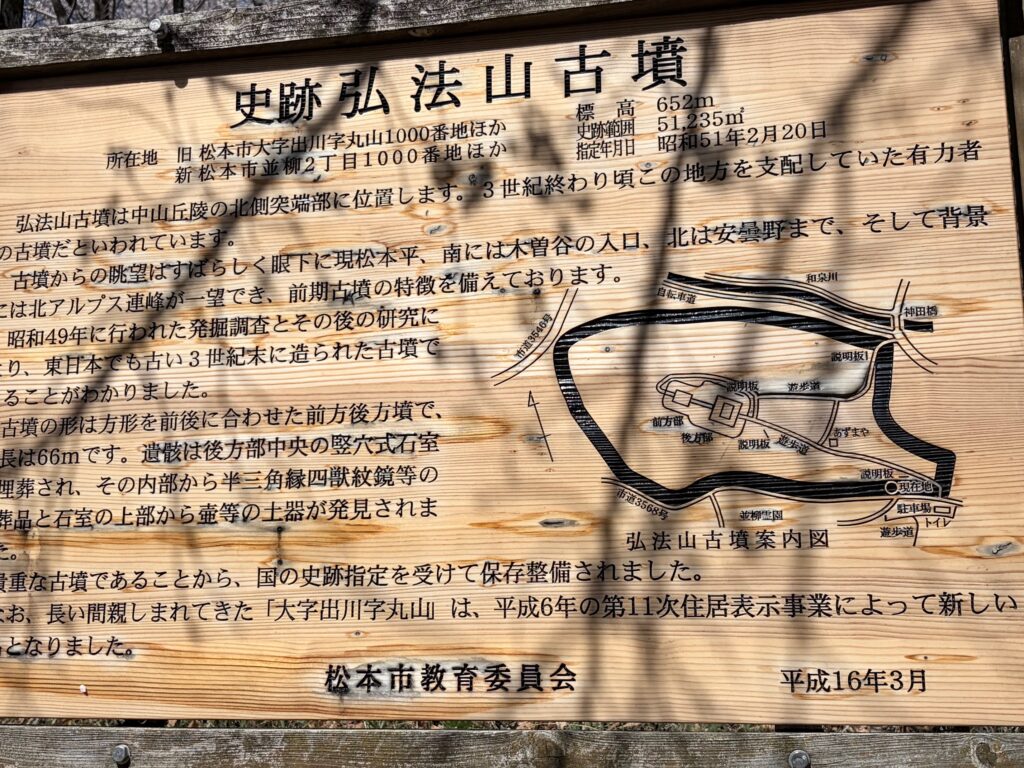 史跡 弘法山古墳
所在地 旧 松本市大字出川字丸山1000番地ほか
新 松本市並柳2丁目1000番地ほか
標高 652m
史跡範囲 51,235㎡
指定年月日 昭和51年2月20日
弘法山古墳は中山丘陵の北側突端部に位置します。3世紀終わり頃この地方を支配していた有力者
の古墳だといわれています。
古墳からの眺望はすばらしく眼下に現松本平、南には木曽谷の入口、北は安曇野まで、そして背景
には北アルプス連峰が一望でき、前期古墳の特徴を備えております。
昭和49年に行われた発掘調査とその後の研究に
より、東日本でも古い3世紀末に造られた古墳で
ることがわかりました。
古墳の形は方形を前後に合わせた前方後方墳で、
長は66mです。遺骸は後方部中央の竪穴式石室
埋葬され、その内部から半三角縁四獣紋鏡等の
葬品と石室の上部から壷等の土器が発見されま
た。
貴重な古墳であることから、国の史跡指定を受けて保存整備されました。
なお、長い間親しまれてきた「大字出川字丸山」は、平成6年の第11次住居表示事業によって新しい
となりました。
松本市教育委員会
平成16年3月
和泉川
自転車道
神田橋
市道3546号
説明板1
説明板
遊歩道
前方部
後方部
あずまや
説明板
遊歩道
説明板
現在地
市道3568号
並柳霊園
駐車場
トイレ
遊歩道
4
弘法山古墳案内図